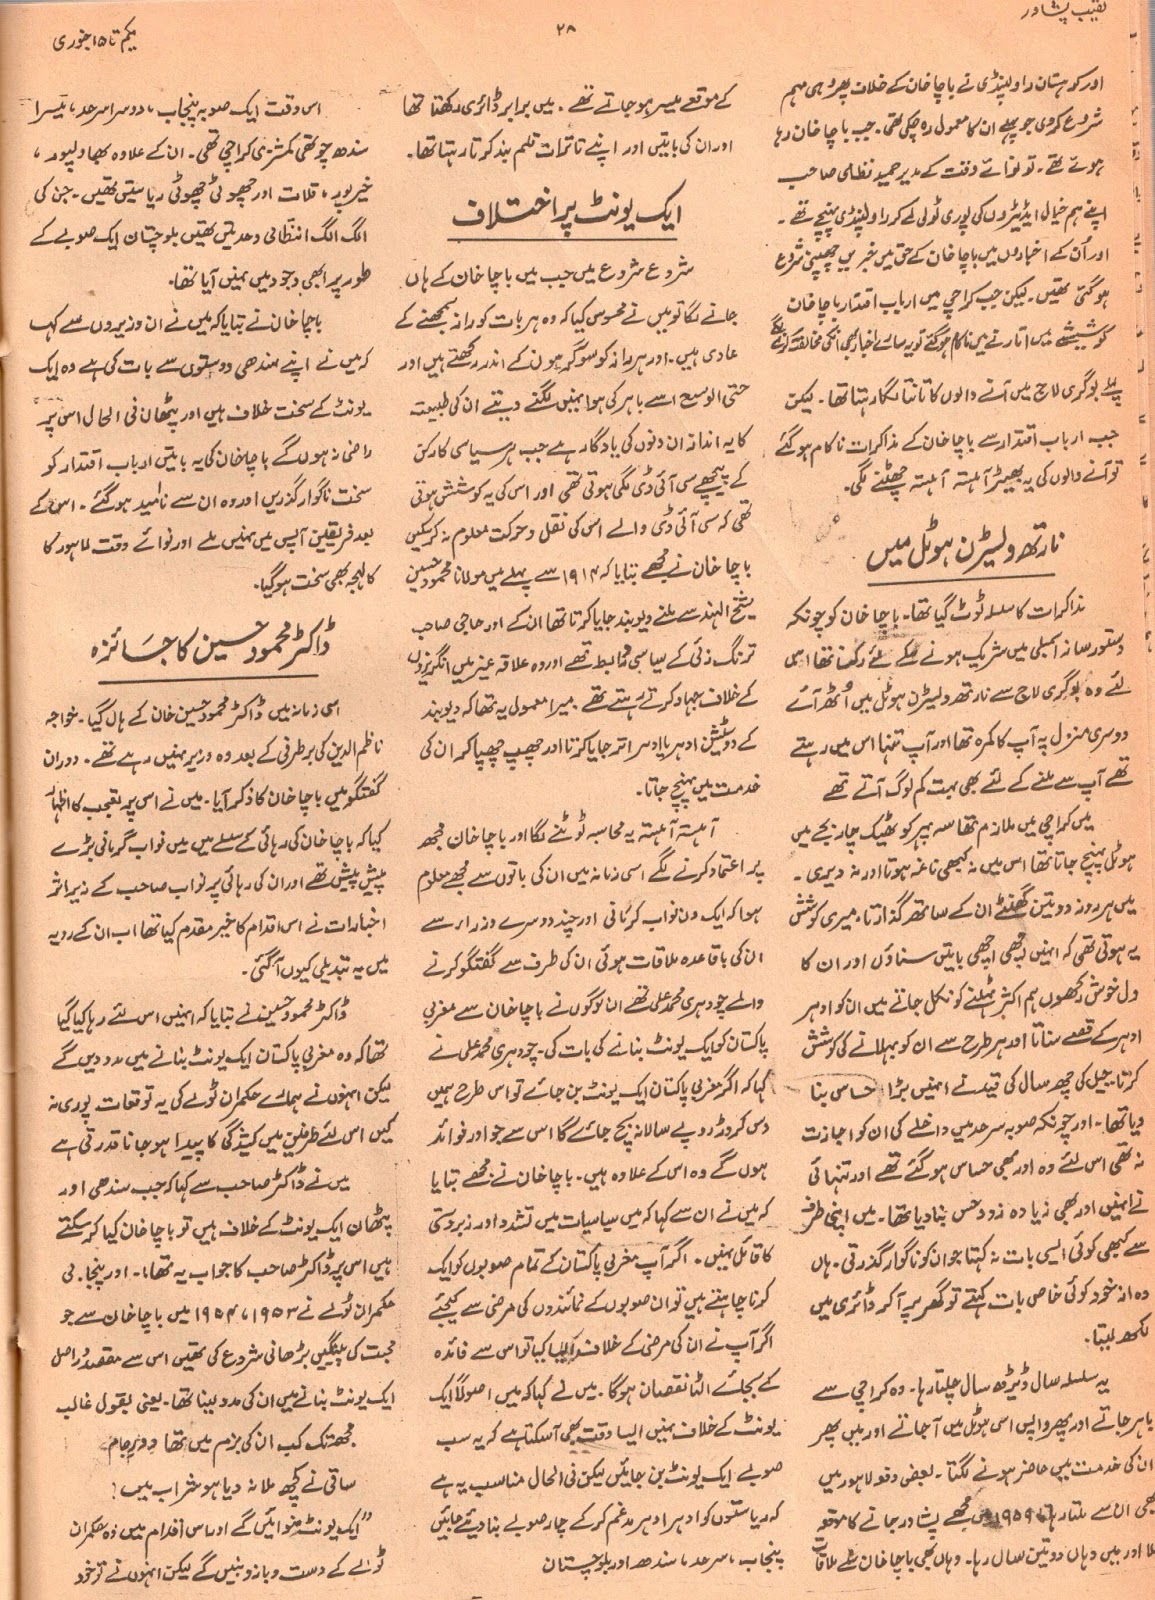 نقیب پشاور
۲۸
یکم تا ۱۵ جنوری
اور کوہستان راولپنڈی نے باچا خان کے خلاف پھر وہی مہم
شروع کر دی جو پہلے ان کا معمول رہ چکی تھی۔ جب باچا خان رہا
ہوئے تھے۔ تو نوائے وقت کے مدیر حمید نظامی صاحب
اپنے ہم خیال ایڈیٹروں کی پوری ٹولی لے کر راولپنڈی پہنچے تھے۔
اور اُن کے اخباروں میں باچا خان کے حق میں خبریں چھپنی شروع
ہو گئی تھیں۔ لیکن جب کراچی میں ارباب اقتدار باچا خان
کو شیشے میں اتارنے میں ناکام ہو گئے تو یہ سارے اخبار بھی انکی مخالفت کرنے لگے
پہلے بوگری لاج میں آنے والوں کا تانتا لگا رہتا تھا۔ لیکن
جب ارباب اقتدار سے باچا خان کے مذاکرات ناکام ہو گئے
تو آنے والوں کی یہ بھیڑ آہستہ آہستہ چھٹنے لگی۔
نارتھ ویسٹرن ہوٹل میں
مذاکرات کا سلسلہ ٹوٹ گیا تھا۔ باچا خان کو چونکہ
دستور ساز اسمبلی میں شریک ہونے کے لئے رکنا تھا اس
لئے وہ بوگری لاج سے نارتھ ویسٹرن ہوٹل میں اُٹھ آئے
دوسری منزل پہ آپ کا کمرہ تھا اور آپ تنہا اس میں رہتے
تھے آپ سے ملنے کے لئے بھی بہت کم لوگ آتے تھے
میں کراچی میں ملازم تھا سہ پہر کو ٹھیک چار بجے میں
ہوٹل پہنچ جاتا تھا اس میں نہ کبھی ناغہ ہوتا اور نہ دیری۔
میں ہر روز دو تین گھنٹے ان کے ساتھ گذارتا۔ میری کوشش
یہ ہوتی تھی کہ انہیں اچھی اچھی باتیں سناؤں اور ان کا
دل خوش رکھوں ہم اکثر ٹہلنے کو نکل جاتے میں ان کو ادہر
ادہر کے قصے سناتا اور ہر طرح سے ان کو بہلانے کی کوشش
کرتا۔ جیل کی چھ سال کی قید نے انہیں بڑا حساس بنا
دیا تھا۔ اور چونکہ صوبہ سرحد میں داخلے کی ان کو اجازت
نہ تھی اس لئے وہ اور بھی حساس ہو گئے تھے اور تنہائی
نے انہیں اور بھی زیادہ زود حس بنا دیا تھا۔ میں اپنی طرف
سے کبھی کوئی ایسی بات نہ کہتا جو ان کو ناگوار گذرتی۔ ہاں
وہ از خود کوئی خاص بات کہتے تو گھر پہ آ کر ڈائری میں
لکھ لیتا۔
یہ سلسلہ سال ڈیڑھ سال چلتا رہا۔ وہ کراچی سے
باہر جاتے اور پھر واپس اسی ہوٹل میں آ جاتے اور میں پھر
ان کی خدمت میں حاضر ہونے لگتا۔ بعض دفعہ لاہور میں
بھی ان سے ملتا رہا ۱۹۵۹ میں مجھے پشاور جانے کا موقعہ
ملا اور میں وہاں دو تین سال رہا۔ وہاں بھی باچا خان سے ملاقات
کے موقعے میسر ہو جاتے تھے۔ میں برابر ڈائری رکھتا تھا
اور ان کی باتیں اور اپنے تاثرات قلم بند کرتا رہتا تھا۔
ایک یونٹ پر اختلاف
شروع شروع میں جب میں باچا خان کے ہاں
جانے لگا تو میں نے محسوس کیا کہ وہ ہر بات کو راز سمجھنے کے
عادی ہیں۔ اور ہر راز کو سو گرہوں کے اندر رکھتے ہیں اور
حتی الوسیع اسے باہر کی ہوا نہیں لگنے دیتے ان کی طبیعت
کا یہ انداز ان دنوں کی یادگار ہے جب ہر سیاسی کارکن
کے پیچھے سی آئی ڈی لگی ہوتی تھی اور اس کی یہ کوشش ہوتی
تھی کہ سی آئی ڈی والے اس کی نقل و حرکت معلوم نہ کر سکیں
باچا خان نے مجھے بتایا کہ ۱۹۱۴ سے پہلے میں مولانا محمود حسین
شیخ الہند سے ملنے دیوبند جایا کرتا تھا ان کے اور حاجی صاحب
ترنگ زئی کے سیاسی ضابطہ تھے اور وہ علاقہ غیر میں انگریزوں
کے خلاف جہاد کرتے رہتے تھے۔ میرا معمول یہ تھا کہ دیوبند
کے دو سٹیشن ادہر یا ادہر اتر جایا کرتا اور چھپ چھپا کر ان کی
خدمت میں پہنچ جاتا۔
آہستہ آہستہ یہ محاسبہ ٹوٹنے لگا اور باچا خان مجھ
پر اعتماد کرنے لگے اسی زمانہ میں ان کی باتوں سے مجھے معلوم
ہوا کہ ایک دن نواب گرمانی اور چند دوسرے وزراء سے
ان کی باقاعدہ ملاقات ہوئی ان کی طرف سے گفتگو کرنے
والے چودہری محمد علی تھے ان لوگوں نے باچا خان سے مغربی
پاکستان کو ایک یونٹ بنانے کی بات کی۔ چودہری محمد علی نے
کہا کہ اگر مغربی پاکستان ایک یونٹ بن جائے تو اس طرح ہمیں
دس کروڑ روپے سالانہ بچ جائے گا اس سے جو اور فوائد
ہوں گے وہ اس کے علاوہ ہیں۔ باچا خان نے مجھے بتایا
کہ میں نے ان سے کہا کہ میں سیاسیات میں تشدد اور زبردستی
کا قائل نہیں۔ اگر آپ مغربی پاکستان کے تمام صوبوں کو ایک
کرنا چاہتے ہیں تو ان صوبوں کے نمائندوں کی مرضی سے کیجئے
اگر آپ نے ان کی مرضی کے خلاف ایسا کیا تو اس سے فائدہ
کے بجائے الٹا نقصان ہوگا۔ میں نے کہا کہ میں اصولاً ایک
یونٹ کے خلاف نہیں ایسا وقت بھی آ سکتا ہے کہ یہ سب
صوبے ایک یونٹ بن جائیں لیکن فی الحال مناسب یہ ہے
کہ ریاستوں کو ادہر ادہر مدغم کر کے چار صوبے بنا دیئے جائیں
پنجاب، سرحد، سندھ اور بلوچستان
اس وقت ایک صوبہ پنجاب، دوسرا سرحد، تیسرا
سندھ چوتھی کمشنری کراچی تھی۔ ان کے علاوہ بہاولپور،
خیرپور، قلات اور چھوٹی چھوٹی ریاستیں تھیں۔ جن کی
الگ الگ انتظامی وحدتیں تھیں بلوچستان ایک صوبے کے
طور پر ابھی وجود میں نہیں آیا تھا۔
باچا خان نے بتایا کہ میں نے ان وزیروں سے کہا
کہ میں نے اپنے سندھی دوستوں سے بات کی ہے وہ ایک
یونٹ کے سخت خلاف ہیں اور پٹھان فی الحال اس پر
راضی نہ ہوں گے باچا خان کی یہ باتیں ارباب اقتدار کو
سخت ناگوار گذریں اور وہ ان سے ناامید ہو گئے۔ اس کے
بعد فریقین آپس میں نہیں ملے اور نوائے وقت لاہور کا
کا لہجہ بھی سخت ہو گیا۔
ڈاکٹر محمود حسین کا جائزہ
اسی زمانہ میں ڈاکٹر محمود حسین خان کے ہاں گیا۔ خواجہ
ناظم الدین کی برطرفی کے بعد وہ وزیر نہیں رہے تھے۔ دوران
گفتگو میں باچا خان کا ذکر آیا۔ میں نے اس پر تعجب کا اظہار
کیا کہ باچا خان کی رہائی کے سلسلے میں میں نواب گرمانی بڑے
پیش پیش تھے اور ان کی رہائی پر نواب صاحب کے زیر اثر
اخبارات نے اس اقدام کا خیر مقدم کیا تھا اب ان کے رویہ
میں یہ تبدیلی کیوں آ گئی۔
ڈاکٹر محمود حسین نے بتایا کہ انہیں اس لئے رہا کیا گیا
تھا کہ وہ مغربی پاکستان ایک یونٹ بنانے میں مدد دیں گے
لیکن انہوں نے ہمارے حکمران ٹولے کی یہ توقعات پوری نہ
کیں اس لئے طرفین میں کشیدگی کا پیدا ہو جانا قدرتی ہے
میں نے ڈاکٹر صاحب سے کہا کہ جب سندھی اور
پٹھان ایک یونٹ کے خلاف ہیں تو باچا خان کیا کر سکتے
ہیں اس پر ڈاکٹر صاحب کا جواب یہ تھا،۔ اور پنجابی
حکمران ٹولے نے ۱۹۵۳، ۱۹۵۴ میں باچا خان سے جو
محبت کی پینگیں بڑھانی شروع کی تھیں اس سے مقصد دراصل
ایک یونٹ بنانے میں ان کی مدد لینا تھا۔ یعنی بقول غالب
مجھ تک کب ان کی بزم میں آتا تھا دور جام
ساقی نے کچھ ملا نہ دیا ہو شراب میں!
"ایک یونٹ منوائیں گے اور اس اقدام میں وہ حکمران
ٹولے کے دست و بازو بنیں گے لیکن انہوں نے تو خود